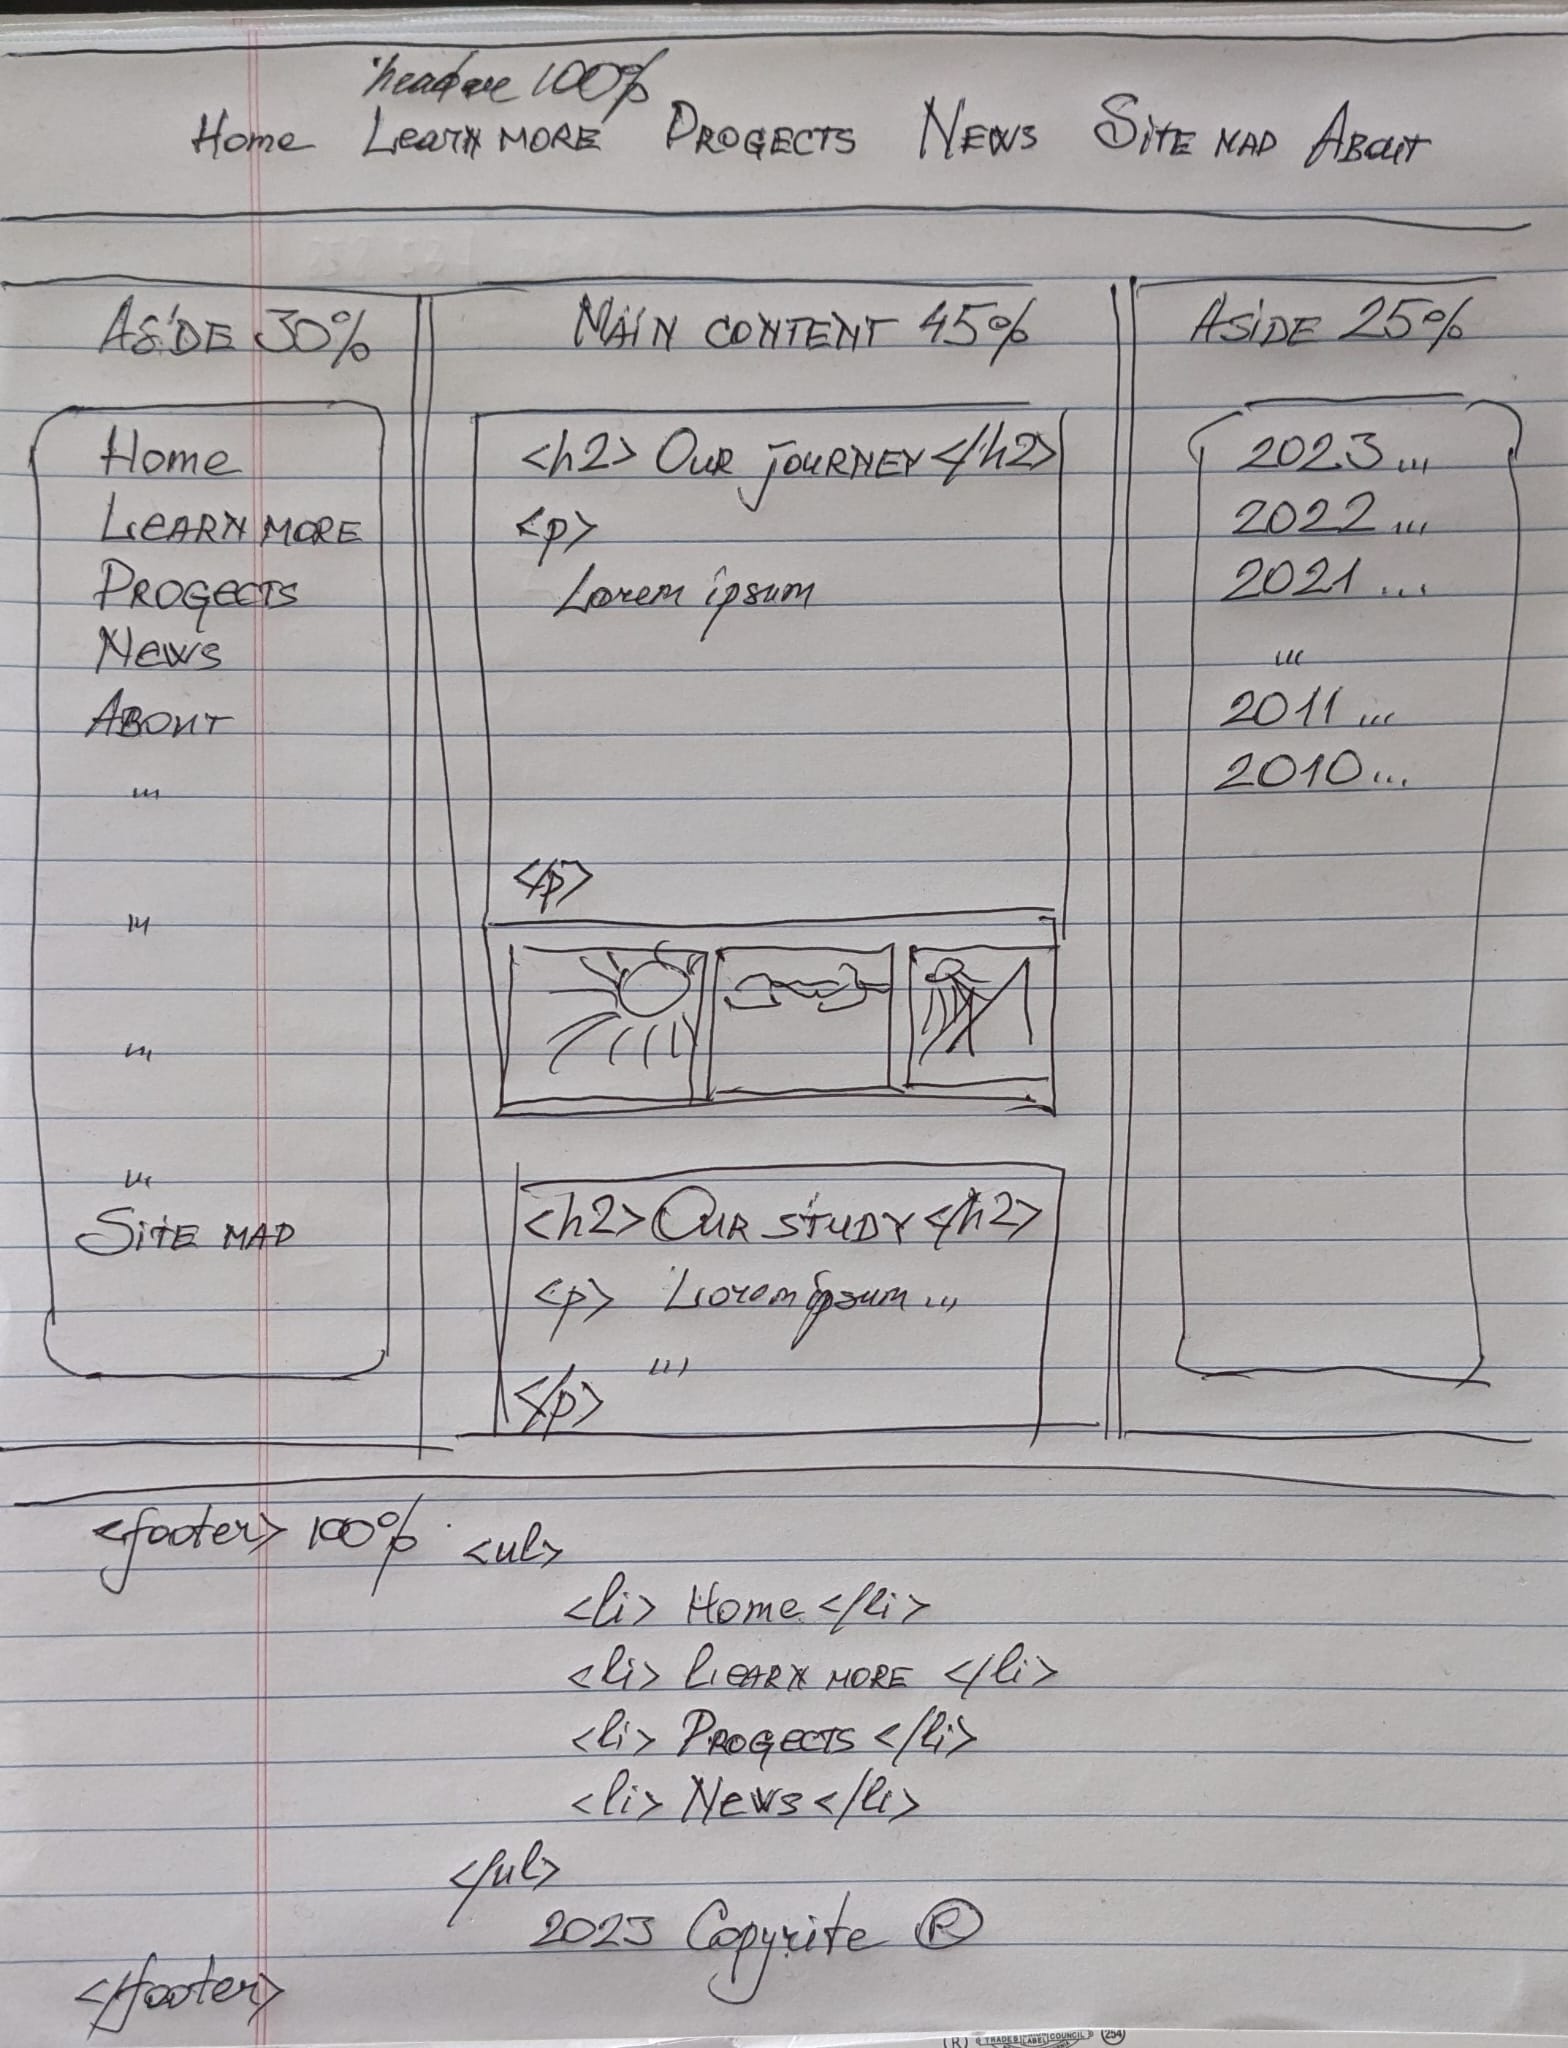 header 100%
Home Learn more Progects News Site mad About
Aside 30%
Home
Learn more
Progects
News
About
...
...
...
...
Site mad
Main content 45%
<h2> Our journey </h2>
<p>
Lorem ipsum
</p>
<h2> Our study </h2>
<p> Lorem ipsum ...
...
</p>
Aside 25%
2023 ...
2022 ...
2021 ...
...
2011 ...
2010 ...
<footer> 100% <ul>
<li> Home </li>
<li> Learn more </li>
<li> Progects </li>
<li> News </li>
</ul>
2023 Copyrite ®
</footer>
(R) TRADES LABEL COUNCIL 254